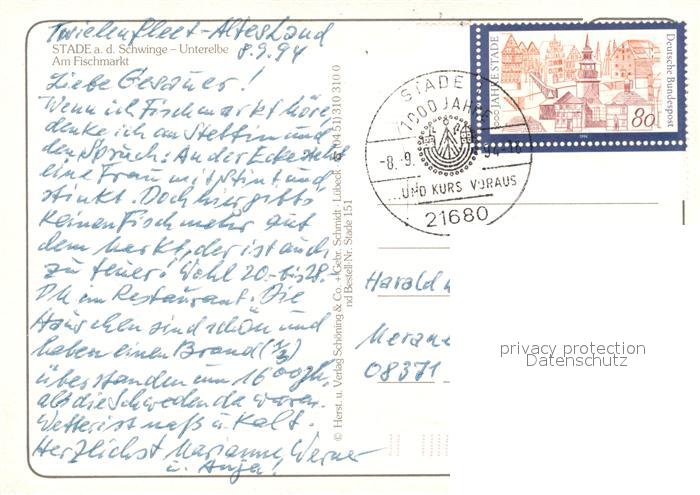 Twielenfleet - Altes Land
STADE a. d. Schwinge – Unterelbe
8.9.94
Am Fischmarkt
Liebe Gesauer!
Wenn ich Fischmarkt höre
denke ich an Stettin und
den Spruch: An der Ecke steht
eine Frau mit Stint und
stinkt. Doch hier gibts
keinen Fisch mehr auf
dem Markt, der ist auch
zu teuer! Wohl 20.- bis 28.-
DM im Restaurant. Die
Häuschen sind schön und
haben einen Brand (⅔)
überstanden um 1600
als die Schweden da waren.
Wetter ist naß u. kalt.
Herzlichst Marianne, Werner
u. Anja!
© Herst. u. Verlag Schöning & Co. + Gebr. Schmidt - Lübeck (04 51) 310 310 0
nd Bestell-Nr. Stade 151
STADE
1000 JAHRE
-8.-9. 94-18
...UND KURS VORAUS
21680
1000 JAHRE STADE
Deutsche Bundespost
80
1994
Harald
08371
privacy protection
Datenschutz